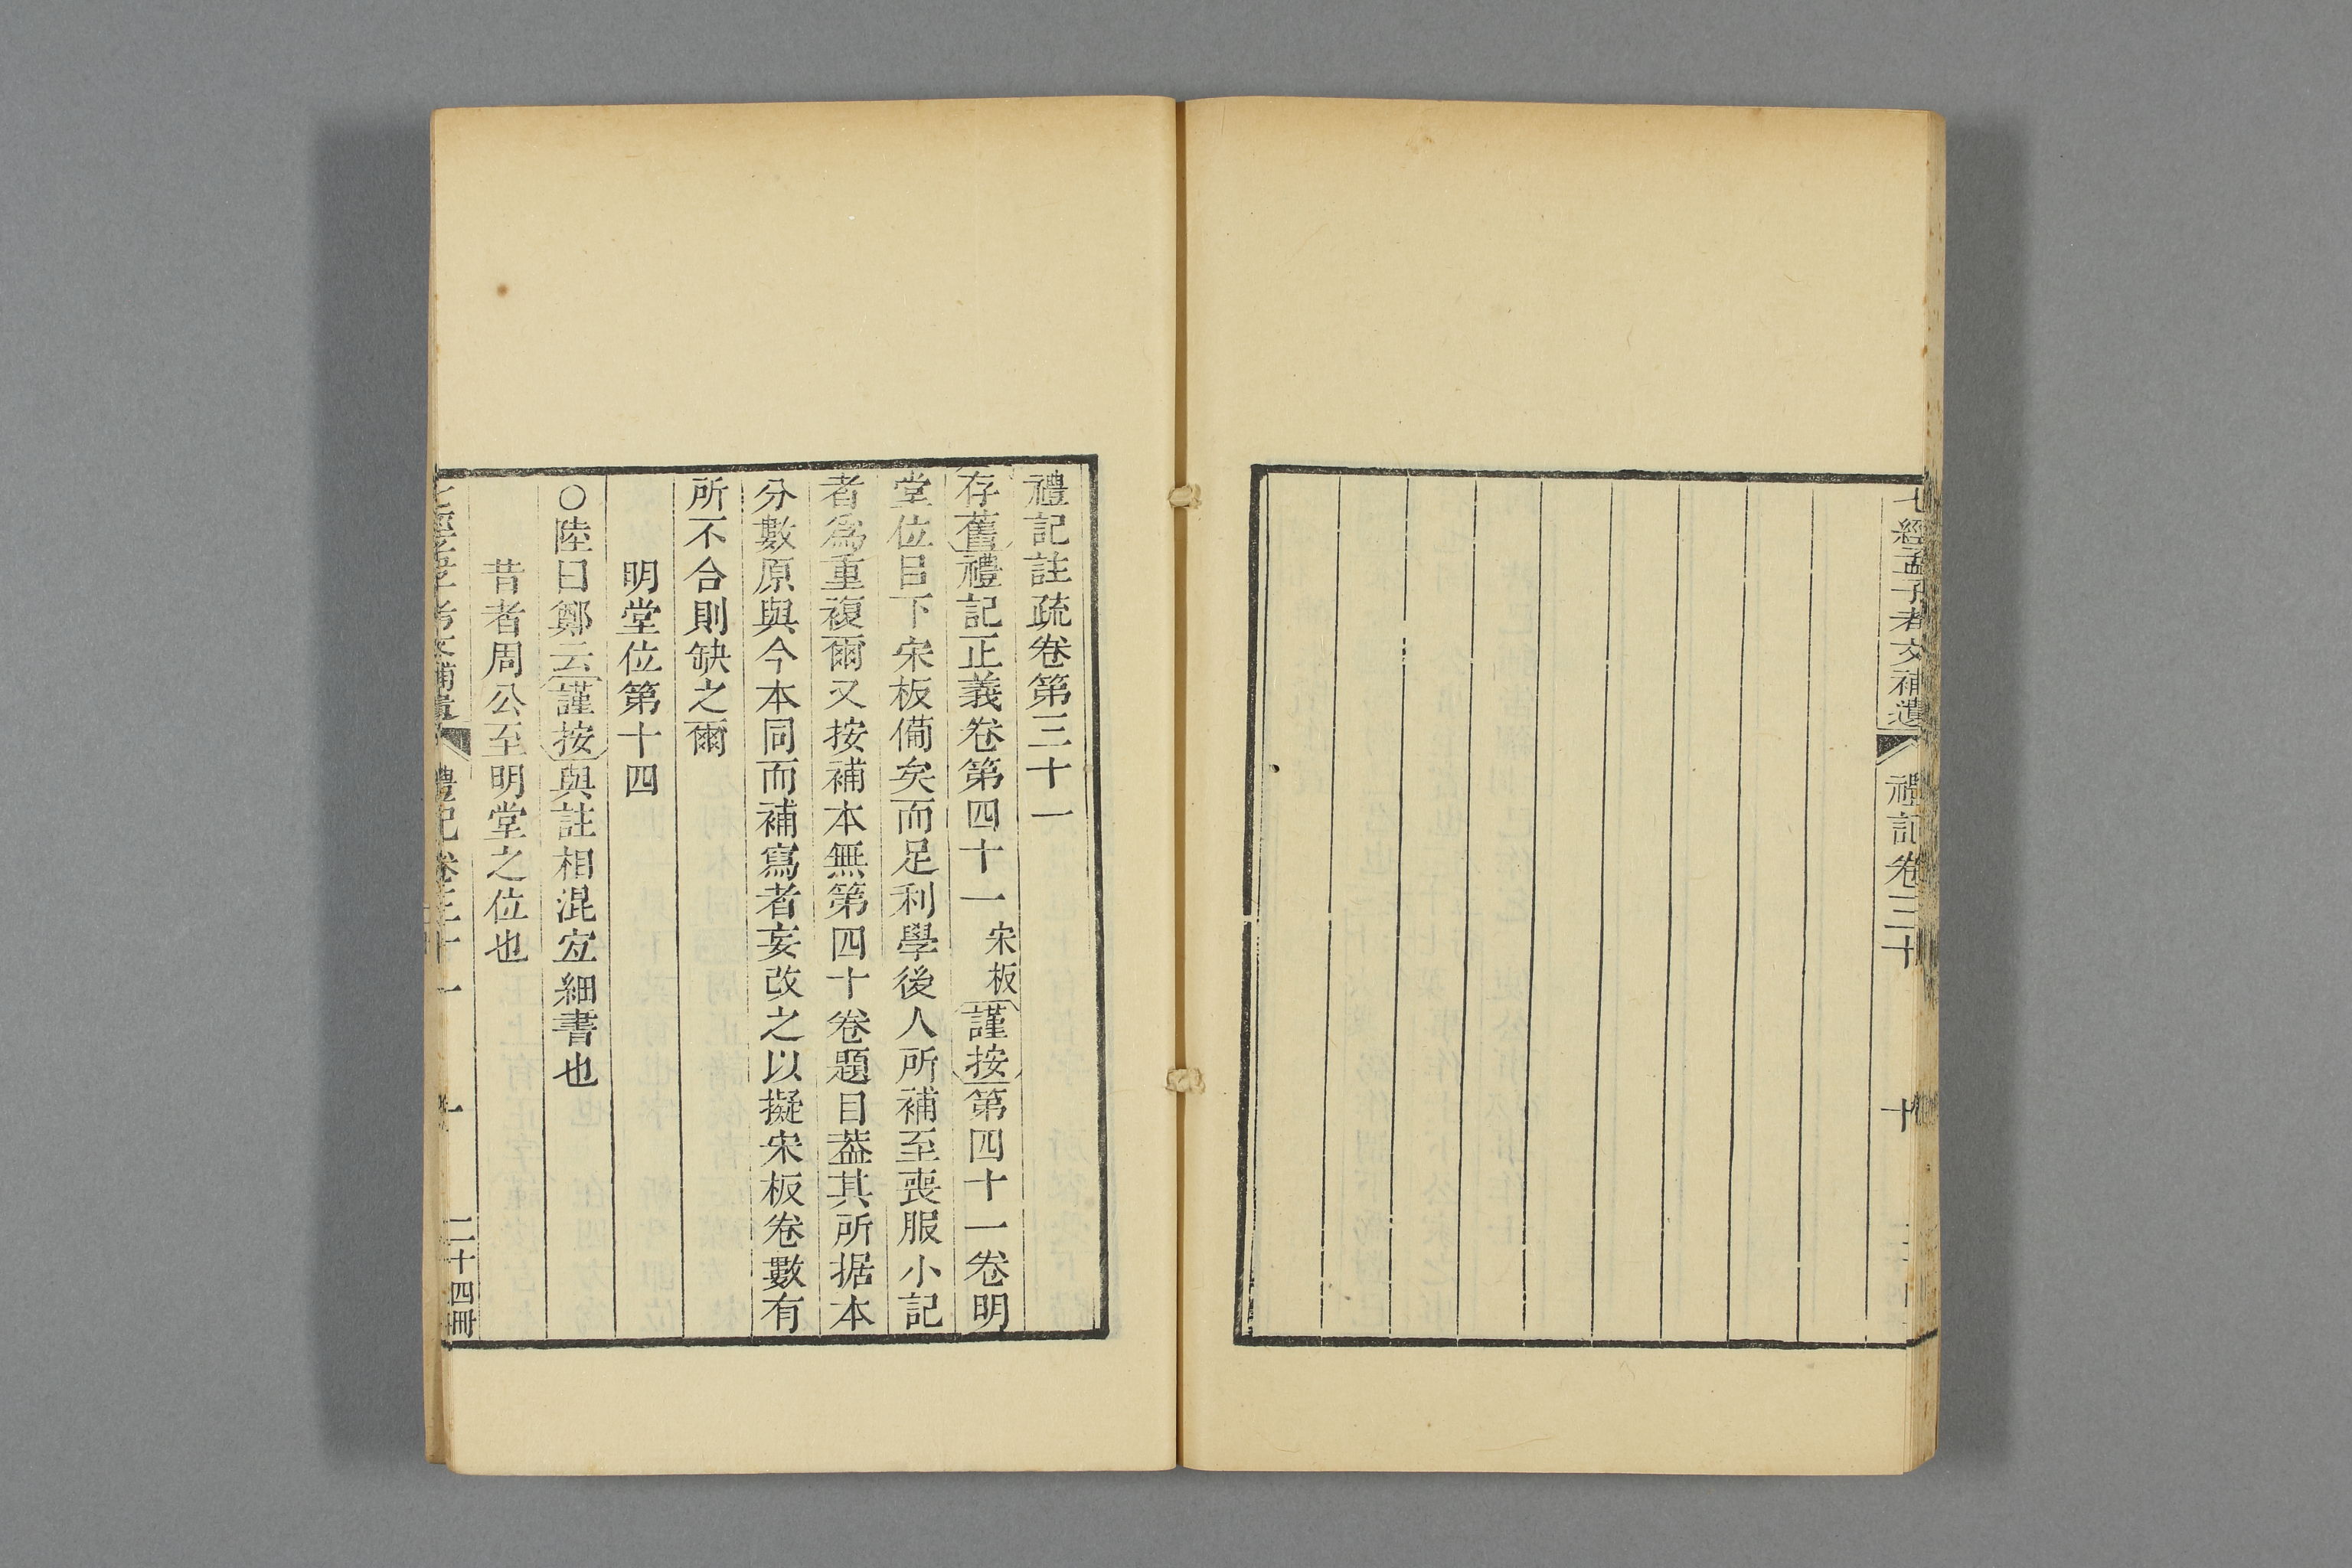 七經孟子考文補遺 禮記卷三十 十
禮記註疏卷第三十一
存舊禮記正義卷第四十一 宋板 謹按第四十一卷明
堂位目下宋板備矣而足利學後人所補至喪服小記
者為重複爾又按補本無第四十卷題目葢其所据本
分數原與今本同而補寫者妄改之以擬宋板卷數有
所不合則缺之爾
明堂位第十四
○陸曰鄭云謹按與註相混宜細書也
昔者周公至明堂之位也
七經孟子考文補遺 禮記卷三十一 一 二十四冊